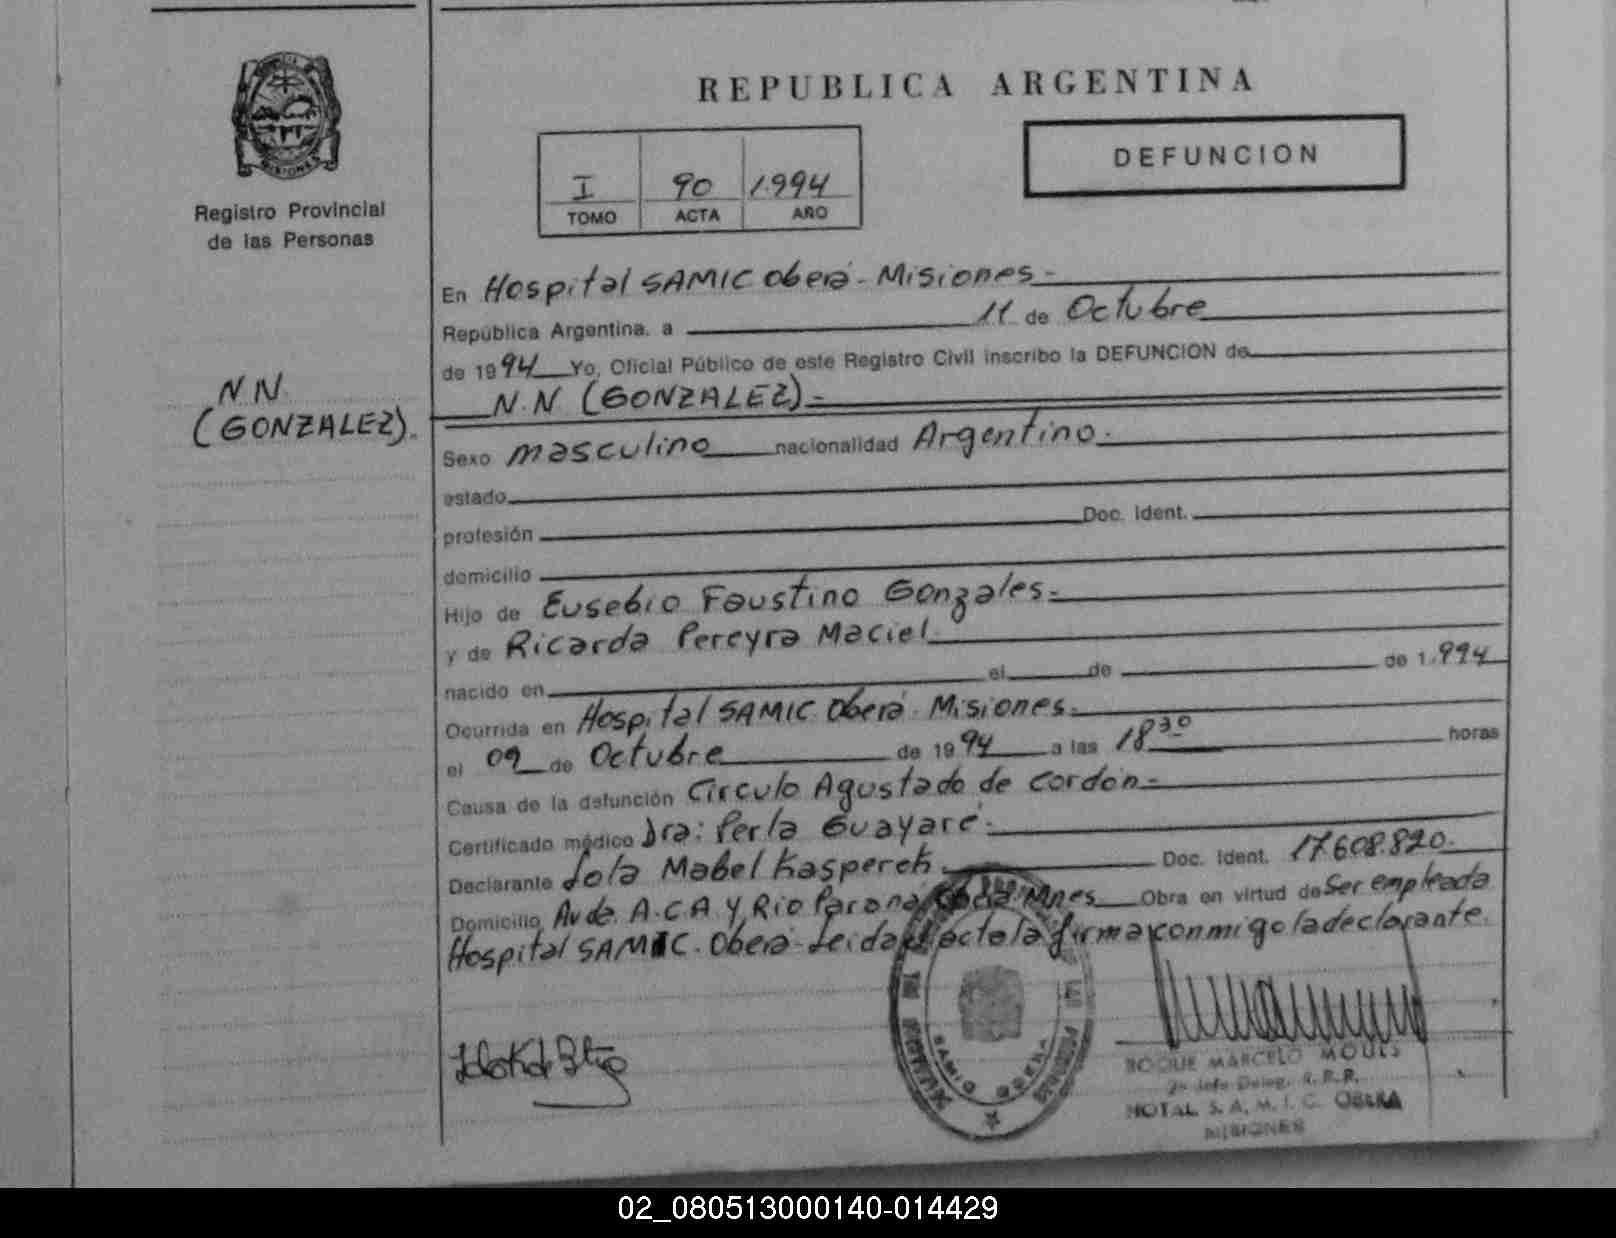 REPUBLICA ARGENTINA
MISIONES
Registro Provincial
de las Personas
I 90 1.994
TOMO ACTA AÑO
DEFUNCION
N.N.
(GONZALEZ).
En Hospital SAMIC Oberá - Misiones -
República Argentina, a 11 de Octubre
de 1994 Yo, Oficial Público de este Registro Civil inscribo la DEFUNCION de
N.N (GONZALEZ)-
Sexo masculino nacionalidad Argentino.
estado
profesión Doc. Ident.
domicilio
Hijo de Eusebio Faustino Gonzales-
y de Ricarda Pereyra Maciel.
nacido en el de de 1.994
Ocurrida en Hospital SAMIC Oberá - Misiones.
el 09 de Octubre de 1994 a las 18 30 horas
Causa de la defunción Circulo Agustado de Cordón-
Certificado médico Dra: Perla Guayaré.
Declarante Lola Mabel Kasperek. Doc. Ident. 17.608.820.
Domicilio Avda. A.C.A y Rio Paraná Mnes Obra en virtud de Ser empleada
Hospital SAMIC. Oberá- Leida el acta la firma conmigo la declarante.
SAMIC OBERA
ROQUE MARCELO
Deleg. R.P.P.
HOTAL S.A.M.I.C. OBERA
MISIONES
02_080513000140-014429